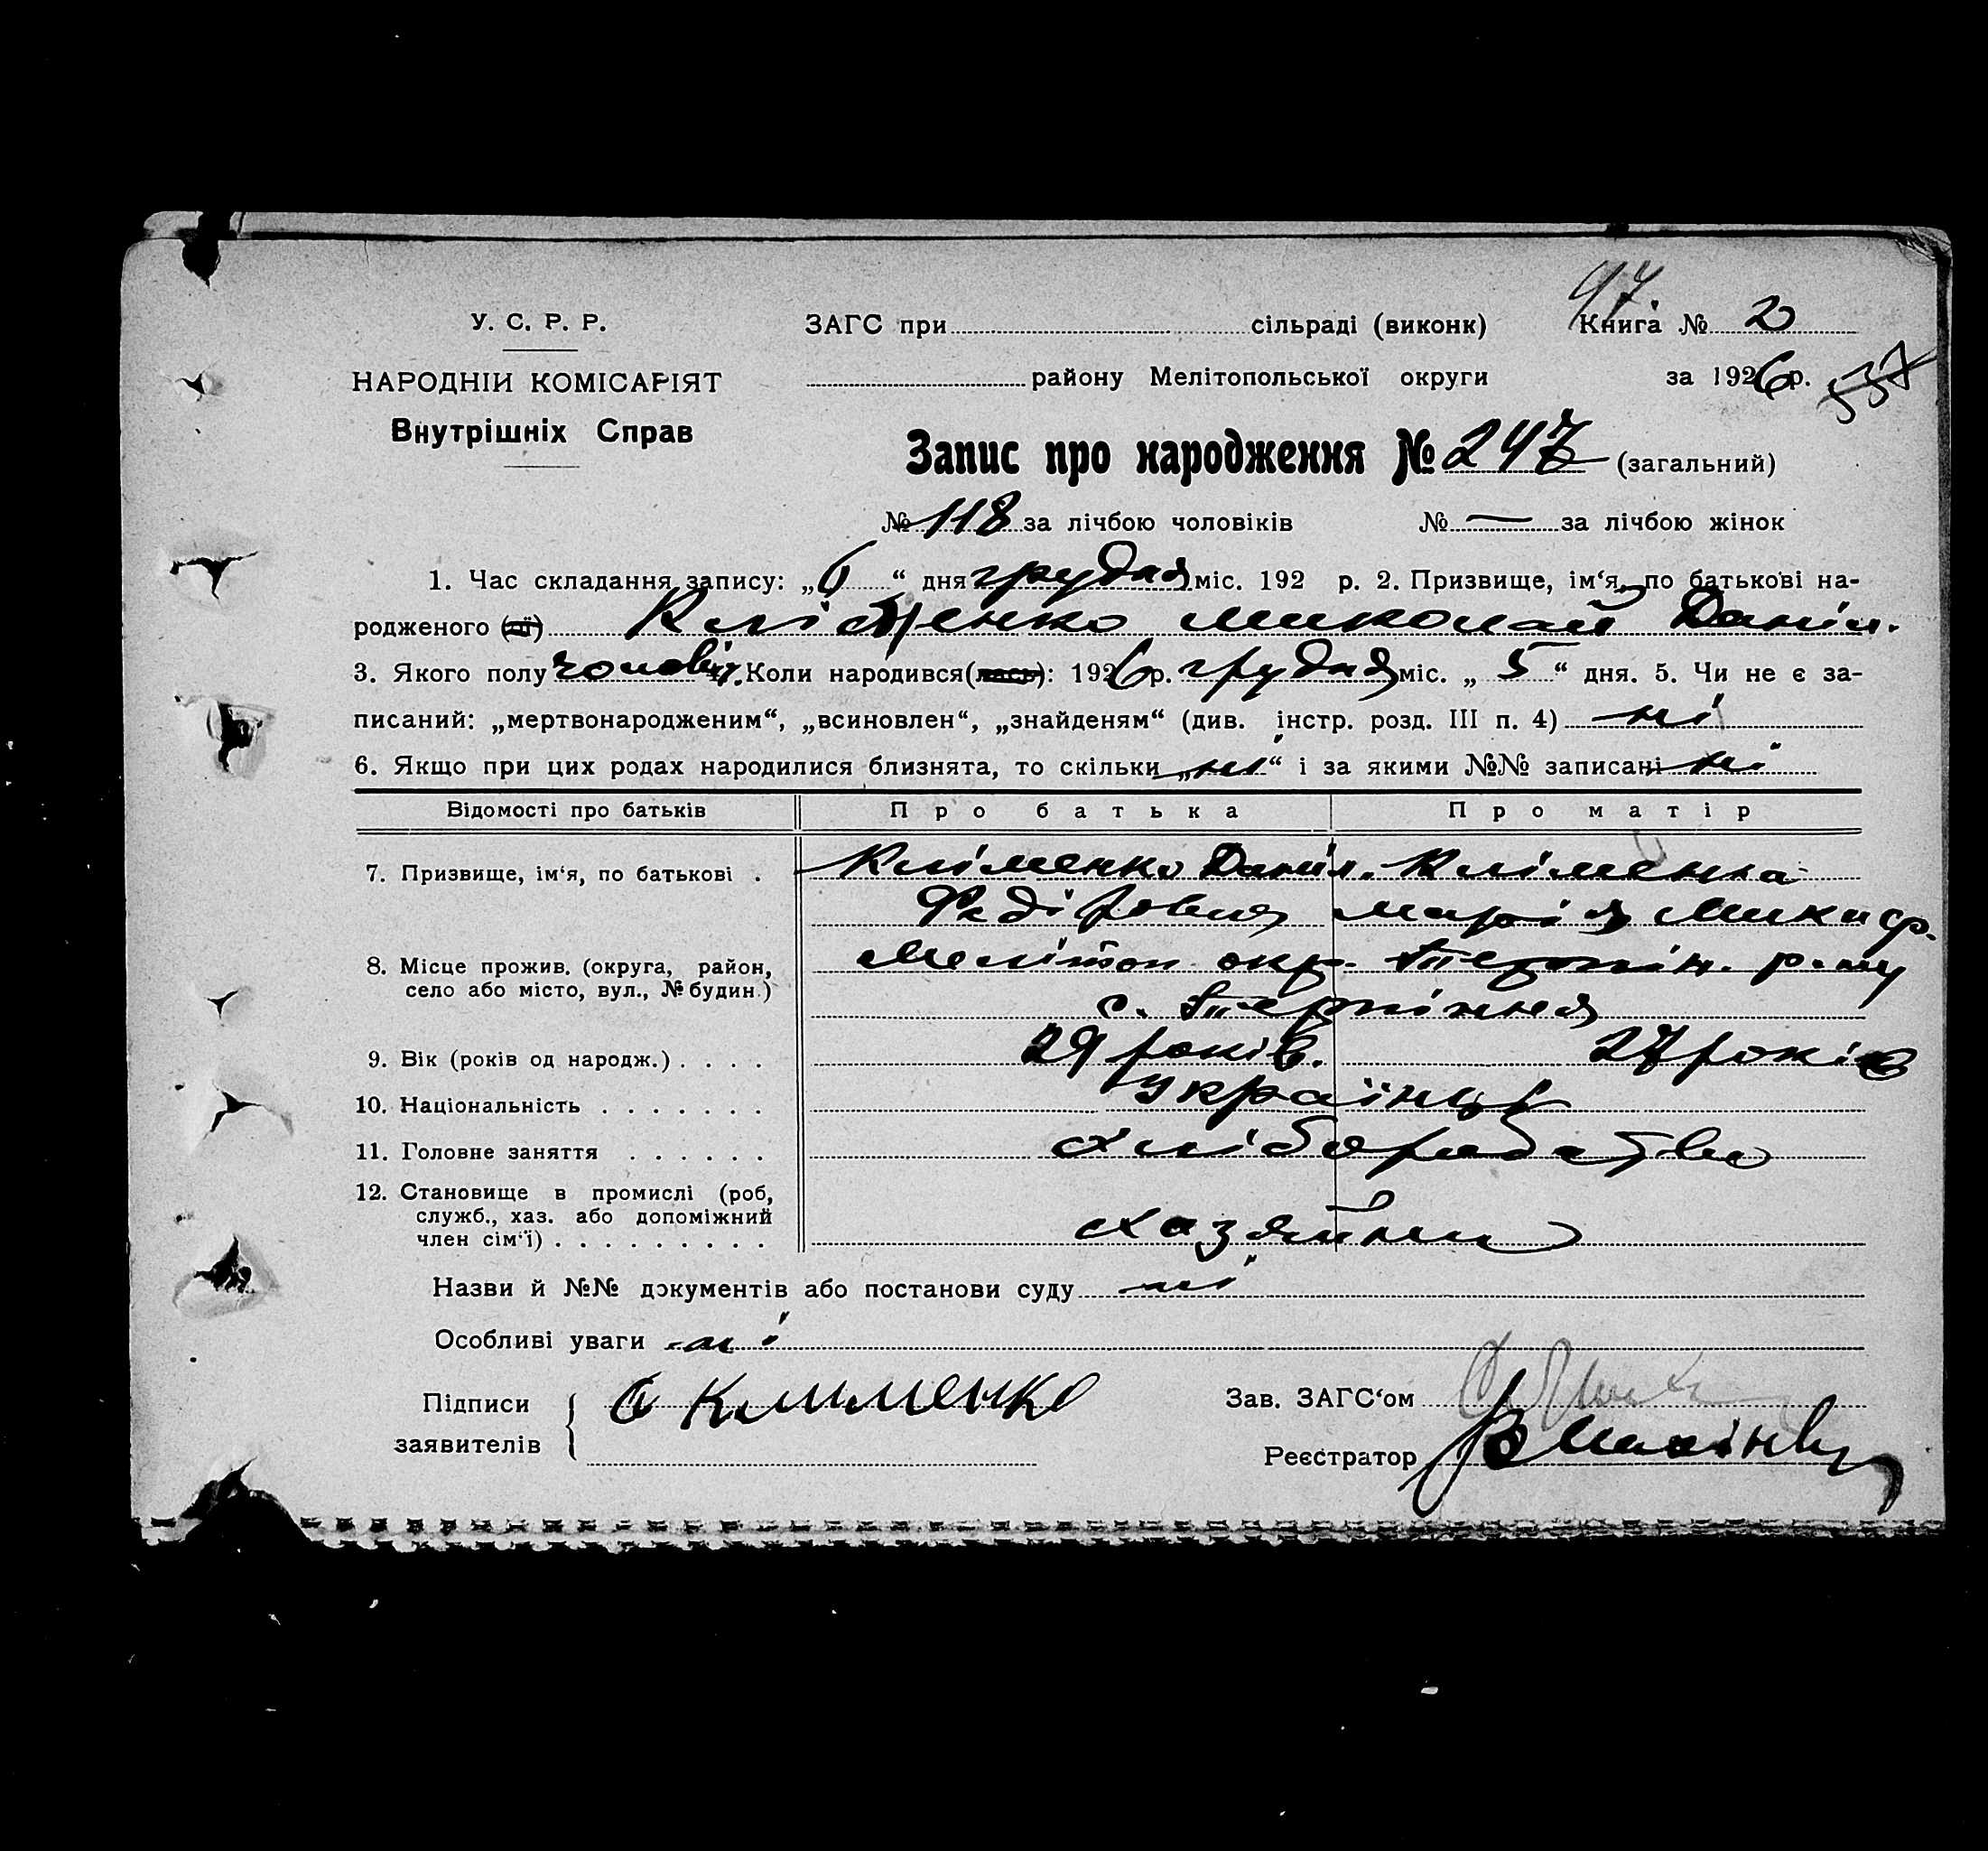 97.
У. С. Р. Р. ЗАГС при сільраді (виконк) Книга № 2
НАРОДНІЙ КОМІСАРІЯТ району Мелітопольської округи за 1926 р. 337
Внутрішніх Справ
Запис про народження № 247 (загальний)
№ 118 за лічбою чоловіків № — за лічбою жінок
1. Час складання запису: „6“ дня грудня міс. 192 р. 2. Призвище, ім‘я, по батькові на-
родженого (ої) Кліменко Миколай Даніл.
3. Якого полу чоловіч. 4. Коли народився(лась): 1926 р. грудня міс. „5“ дня. 5. Чи не є за-
писаний: „мертвонародженим“, „всиновлен“, „знайденям“ (див. інстр. розд. III п. 4) ні
6. Якщо при цих родах народилися близнята, то скільки „ні“ і за якими №№ записані ні
Відомості про батьків Про батька Про матір
7. Призвище, ім‘я, по батькові . Кліменко Даніл. Кліменка
Марія Микиф.
8. Місце прожив. (округа, район, Мелітоп. окр. Терпін. р-ну
село або місто, вул., № будин.) с. Терпіння
9. Вік (років од народж.) . . . . 29 років. 27 років
10. Національність . . . . . . . українці
11. Головне заняття . . . . . . хліборобство
12. Становище в промислі (роб,
служб., хаз. або допоміжний
член сім‘ї) . . . . . . . . . хазяйни
Назви й №№ документів або постанови суду ні
Особливі уваги ні
Підписи Клименко Зав. ЗАГС‘ом
заявителів Реєстратор